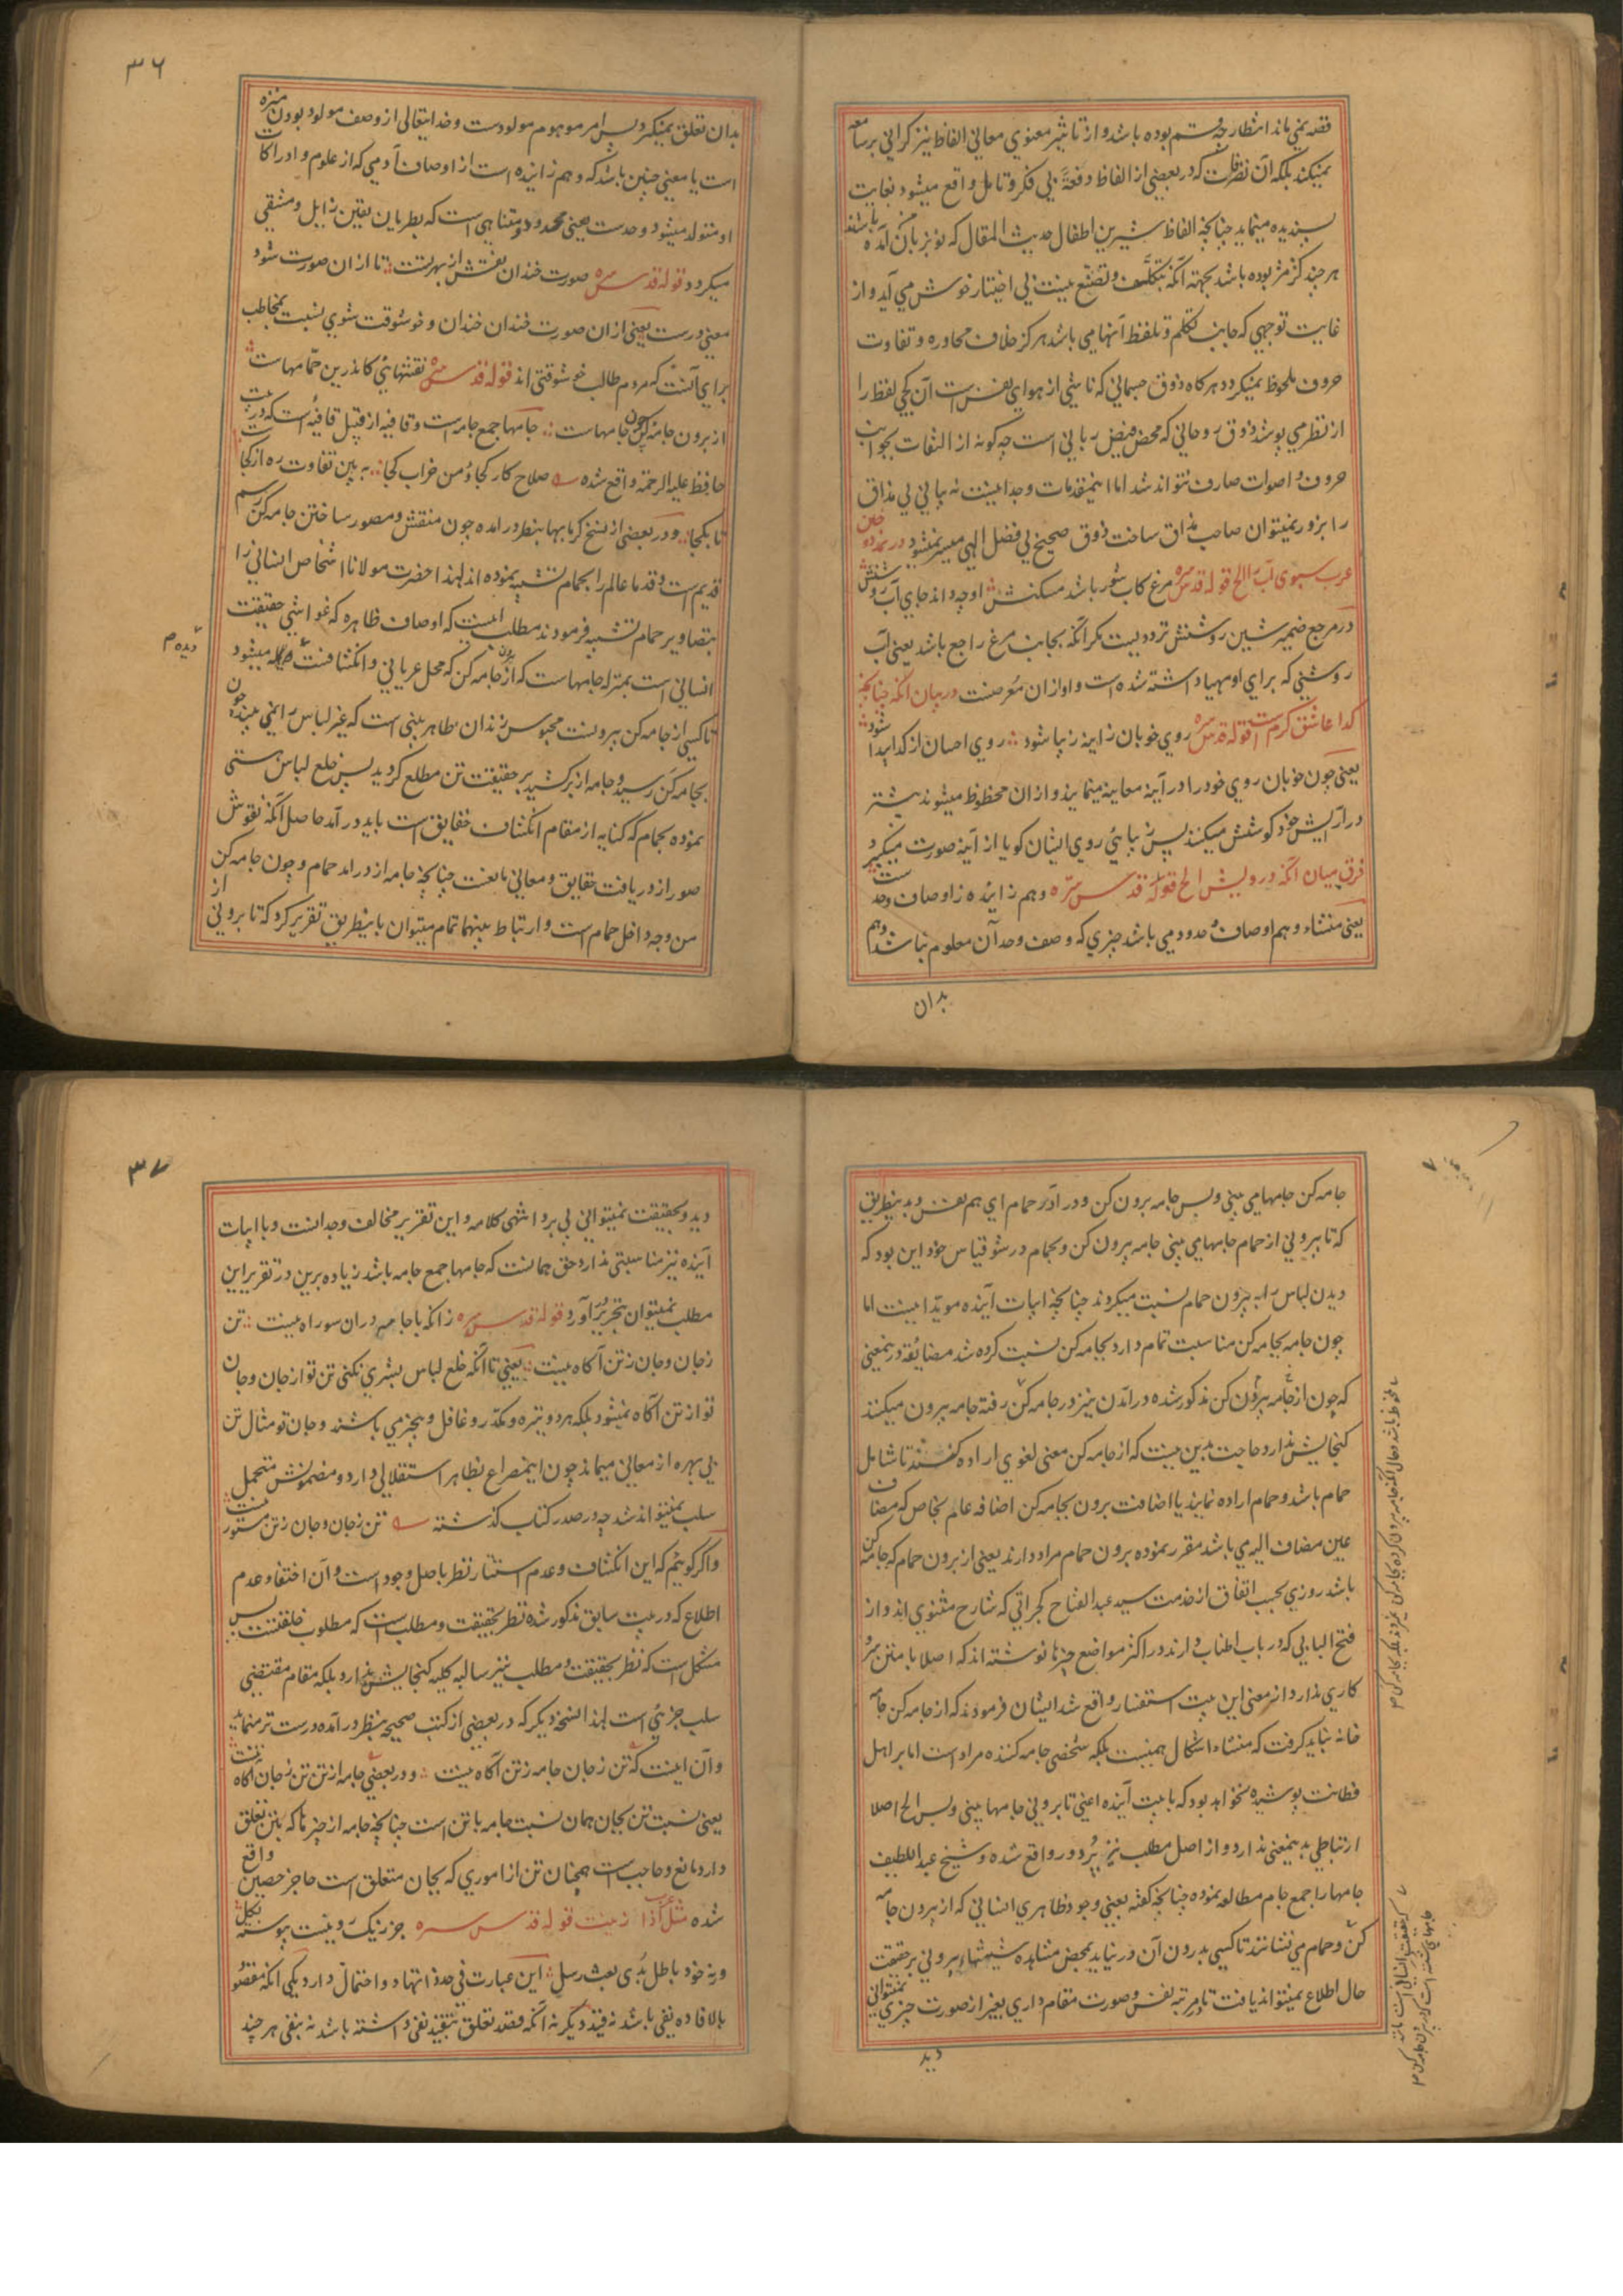 قصد نمی باند انتظار چه قسم بوده باشد و از تاثیر معنوی معانی الفاظ نیز گرانی بر سامعه
نمیکند بلکه آن نظر است که در بعضی از الفاظ دفعةً بی فکر و تامل واقع میشود بغایت
پسندیده مینماید چنانچه الفاظ شیرین اطفال حدیث المقال که نو بزبان آمده باشند
هر چند کژمژ بوده باشد بجهته آنکه بتکلف و تصنّع نیست بی اختیار خوش می آید و از
غایت توجهی که جانب تکلم و تلفظ آنها می باشد هرگز خلاف محاوره و تفاوت
حروف ملحوظ نمیکردد هرکاه ذوق جسمانی که ناشی از هوای نفس است آن کجی لفظ را
از نظر می پوشد ذوق روحانی که محض فیض ربانی است چه کونه از التفات بجوانب
حروف و اصوات صارف نتواند شد اما اینمقدمات وجدانیست نه بیانی بی مذاق
را بزور نمیتوان صاحب مذاق ساخت ذوق صحیح بی فضل الهی میسر نمیشود
عرب سبوی آب را الخ قوله قدس سره مرغ کاب شور باشد مسکنش او چه داند جای آب روشنش
در مرجع ضمیر شین روشنش تردد نیست مکر آنکه بجانب مرغ راجع باشد یعنی آب
روشنی که برای او مهیا داشته شده است و او ازان مُعرضست در بیان آنکه چنانکه
کدا عاشق کرم است قوله قدس سره روی خوبان زاینه زیبا شود روی احسان از کدا پیدا شود
یعنی چون خوبان روی خود را در آینه معاینه مینمایند و ازان محظوظ میشوند بیشتر
در آرایش خود کوشش میکنند پس زیبائی روی ایشان کویا از آینه صورت میکیرد
فرق میان آنکه درویش الخ قوله قدس سرّه وهم زاینده ز اوصاف و حد است
یعنی منشاء وهم اوصاف و حدود می باشد چیزی که وصف و حد آن معلوم نباشد وهم
بدان
٣٦
بدان تعلق نمیکیرد پس امر موهوم مولودست و خدایتعالی از وصف مولود بودن منزه
است یا معنی چنین باشد که وهم زاینده است از اوصاف آدمی که از علوم و ادراکات
او متولد میشود و حدست یعنی محدود و متناهی است که بطریان یقین زایل و منتفی
میکردد قوله قدس سره صورت خندان نقش از بهر تست تا ازان صورت شود
معنی درست یعنی ازان صورت خندان خندان و خوشوقت شوی نسبت بمخاطب
برای آنست که مردم طالب خوشوقتی اند قوله قدس سره نقشهائی کاندرین حمّامهاست
از برون جامه کن چون جامهاست جامها جمع جامه است و قافیه از قبیل قافیه است که در بیت
حافظ علیه الرحمة واقع شده صلاح کار کجا و من خراب کجا به بین تفاوت ره از کجاست
تا بکجا و در بعضی از نسخ کرمابها بنظر در امده چون منقش و مصور ساختن جامه کن رسم
قدیم است و قدما عالم را بحمام تشبیه نموده اند لهذا حضرت مولانا اشخاص انسانی را
بتصاویر حمام تشبیه فرمودند مطلب اینست که اوصاف ظاهره که غواشی حقیقت
انسانی است بمنزله جامهاست که از برون جامه کن که محل عریانی و انکشافست میشود
دیده م
تا کسی از جامه کن بیرونست محبوس زندان ظاهر بینی است که غیر لباس را نمی بیند چون
بجامه کن رسید و جامه از بر کشید بر حقیقت تن مطلع کردید پس خلع لباس هستی
نموده بحمام که کنایه از مقام انکشاف حقایق است باید در آمد حاصل آنکه نقوش
صور از دریافت حقایق و معانی مانعست چنانچه جامه از درامد حمام و چون جامه کن
من وجه داخل حمام است و ارتباط بینهما تمام میتوان باینطریق تقریر کرد که تا برونی از
جامه کن جامها می بینی و بس جامه برون کن و در آ در حمام ای هم نفس و بدینطریق
که تا بیرونی از حمام جامها می بینی جامه بیرون کن و بحمام در شو قیاس خود این بود که
دیدن لباس را به بیرون حمام نسبت میکردند چنانچه ابیات آینده موید اینست اما
چون جامه بجامه کن مناسبت تمام دارد بجامه کن نسبت کرده شد مضایقه در ینمعنی
که چون از جامه بیرون کن مذکور شده درامدن نیز در جامه کن رفته جامه بیرون میکنند
کنجایش ندارد حاجت بدین نیست که از جامه کن معنی لغوی اراده کنند تا شامل
حمام باشد و حمام اراده نمایند یا اضافت برون بجامه کن اضافه عام بخاص که مضاف
عین مضاف الیه می باشد مقرر نموده برون حمام مراد دارند یعنی از برون حمام که جامه کن
باشد روزی بحسب اتفاق از خدمت سید عبد الفتاح کجراتی که شارح مثنوی اند و از
فتح البابی که در باب اطناب دارند در اکثر مواضع چیزها نوشته اند که اصلا با متن سرو
کاری ندارد از معنی این بیت استفسار واقع شد ایشان فرمودند که از جامه کن جامه
خانه نباید کرفت که منشاء اشکال همینست بلکه شخصی جامه کننده مراد است اما بر اهل
فطانت پوشیده نخواهد بود که با بیت آینده اعنی تا برونی جامها بینی و بس الخ اصلا
ارتباطی بدینمعنی ندارد و از اصل مطلب نیز پُر دور واقع شده و شیخ عبد اللطیف
جامها را جمع جام مطالعه نموده چنانچه کفته یعنی وجود ظاهری انسانی که از بیرون جامه
کن و حمام می نشانند تا کسی بدرون آن در نیاید بمحض مشاهده شیشهاء بیرونی بر حقیقت
حال اطلاع نمیتواند یافت تا در مرتبه نفس و صورت مقام داری بغیر از صورت چیزی نمیتوانی
دید
٣٧
دید و بحقیقت نمیتوانی پی برد انتهی کلامه و این تقریر مخالف وجدانست و با ابیات
آینده نیز مناسبتی ندارد حق همانست که جامها جمع جامه باشد زیاده برین در تقریر این
مطلب نمیتوان بتحریر در آورد قوله قدس سره زانکه با جامه دران سو راه نیست تن
زجان و جان زتن آکاه نیست یعنی تا آنکه خلع لباس بشری نکنی تن تو از جان و جان
تو از تن آکاه نمیشود بلکه هر دو تیره و مکدر و غافل و بیخبر می باشند و جان تو مثال تن
بی بهره از معانی میماند چون اینمصراع بظاهر استقلالی دارد و مضمونش متحمل
سلب نمیتواند شد چه در صدر کتاب کذشته تن زجان و جان زتن مستور نیست
و اکر کوییم که این انکشاف و عدم استتار نظر باصل وجود است و آن اختفا و عدم
اطلاع که در بیت سابق مذکور شده نظر بحقیقت و مطلب است که مطلوب خلقتست پس
مشکل است که نظر بحقیقت و مطلب نیز سالبه کلیه کنجایش ندارد بلکه مقام مقتضی
سلب جزئی است لهذا نسخه دیکر که در بعضی از کتب صحیحه بنظر در آمده درست تر مینماید
و آن اینست که تن زجان جامه زتن آکاه نیست و در بعضی جامه از تن تن زجان آکاه نیست
یعنی نسبت تن بجان همان نسبت جامه با تن است چنانچه جامه از چیزها که بتن تعلق
دارد مانع و حاجب است همچنان تن از اموری که بجان متعلق است حاجز حصین واقع
شده قوله قدس سره
و نه خود باطل بُدی بعث رسل این عبارت فی حد ذاتها دو احتمال دارد یکی آنکه مقصود
بالافاده نفی باشد نه قید دیکر نه آنکه قصد تعلق بتقیید نفی داشته باشد نه بنفی هر چند